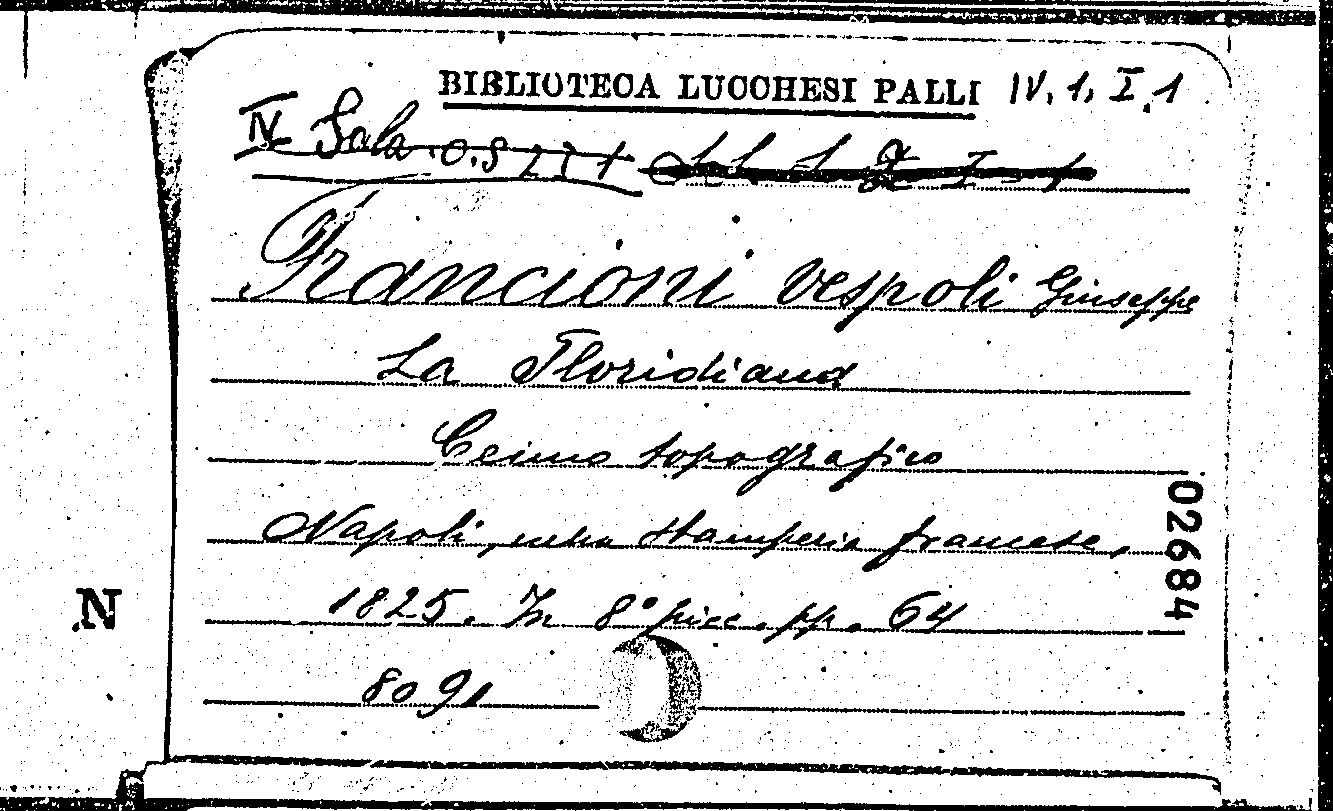 BIBLIOTECA LUCCHESI PALLI IV. 1. I. 1
IV Sala
Francioni Vespoli Giuseppe
La Floridiana
Cenno topografico
Napoli, nella Stamperia francese,
1825. In 8° picc. pp. 64
8091
02684
N